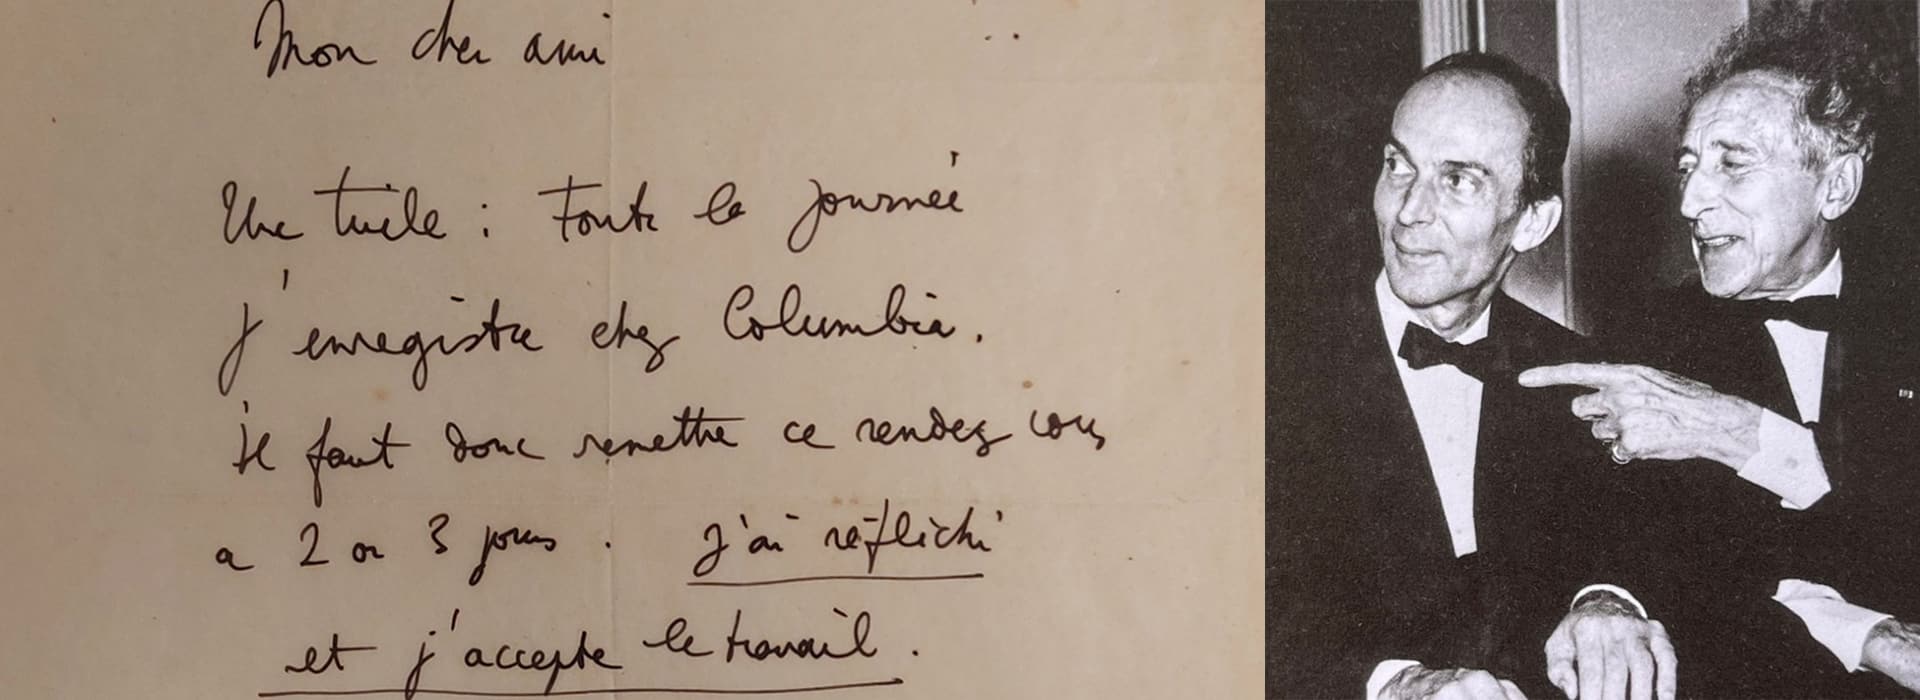 Mon cher ami
Une tuile : Toute la journée
j'enregistre chez Columbia.
Il faut donc remettre ce rendez vous
a 2 ou 3 jours . J'ai réfléchi
et j'accepte le travail .